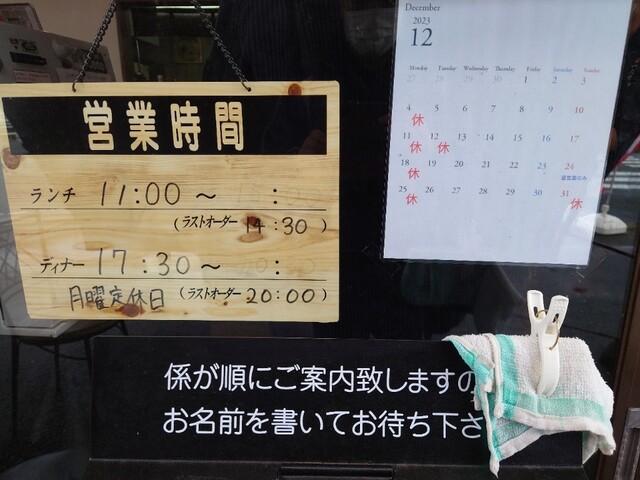 営業時間
ランチ 11:00 〜 :
(ラストオーダー 14:30)
ディナー 17:30〜 :
月曜定休日 (ラストオーダー 20:00)
December
2023
12
Monday Tuesday Wednesday Thursday Friday Saturday Sunday
27 28 29 30 1 2 3
4 5 6 7 8 9 10
休
11 12 13 14 15 16 17
休 休
18 19 20 21 22 23 24
休
25 26 27 28 29 30 31
休 休
係が順にご案内致しますの
お名前を書いてお待ち下さ